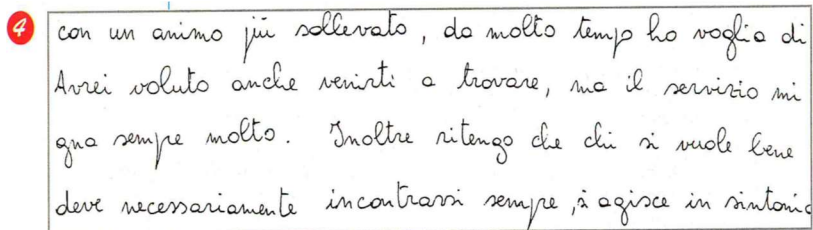 4
con un animo più sollevato, da molto tempo ho voglia di
Avrei voluto anche venirti a trovare, ma il servizio mi
gna sempre molto. Inoltre ritengo che chi si vuole bene
deve necessariamente incontrarsi sempre, si agisce in sintonia